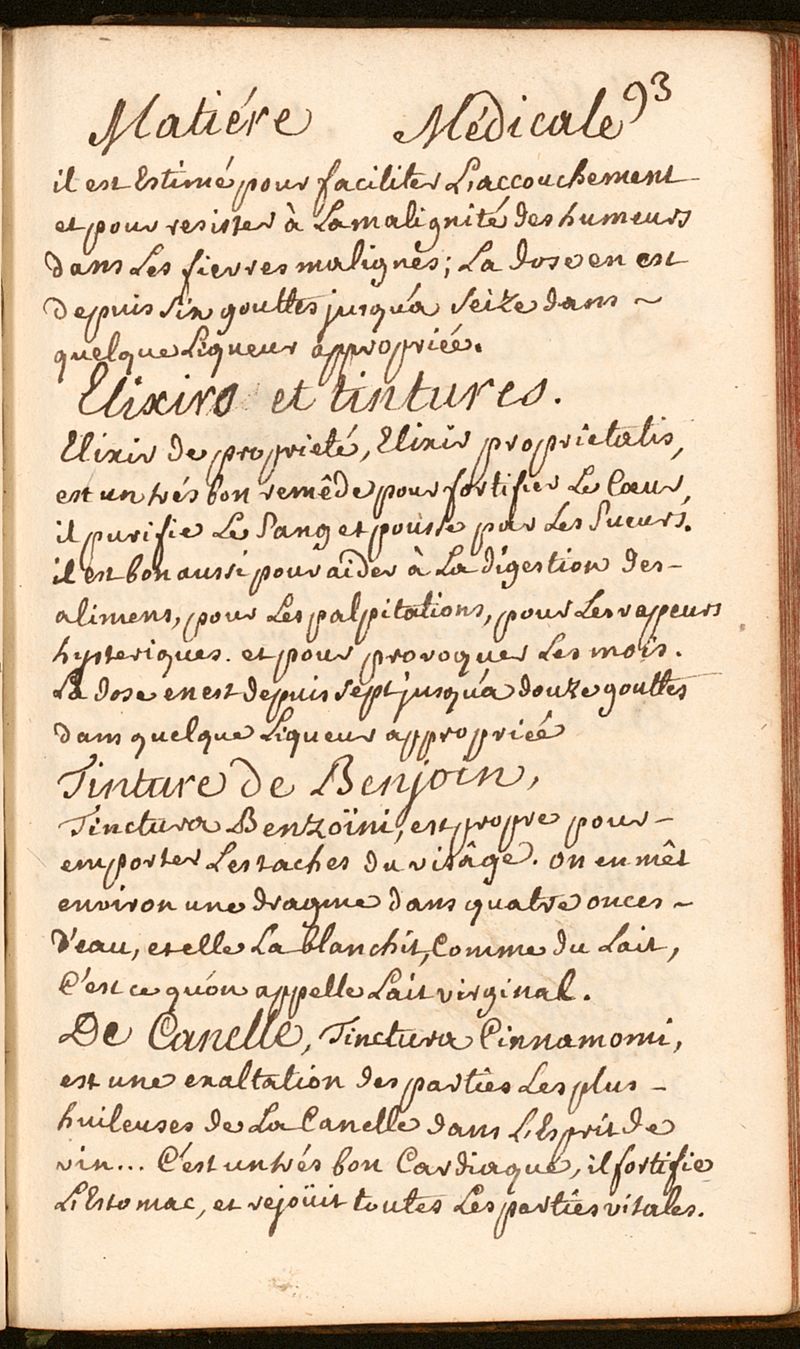 93
Matiére Médicale
il est Estimé pour faciliter L'accouchement
et pour resister à La malignité des humeurs
dans Les fievres malignes; La dose en est
depuis six gouttes jusqu'a seize dans ~
quelque Liqueur appropriée.
Elixirs et tintures.
Elixir de proprieté, Elixir proprietatis,
est un trés bon remêde pour fortifier Le Cœur,
il purifie Le Sang et pousse par Les Sueurs.
il est bon aussi pour aider à La digestion des -
alimens, pour Les palpitations, pour Les vapeurs
hysteriques. et pour provoquer Les mois.
La dose en est depuis sept jusqu'a douze gouttes
dans quelque Liqueur appropriée
Tinture de Benjoin,
Tinctura Benzoïni, est propre pour -
emporter Les taches du visâge. on en mêt
environ une dragme dans quatre onces ~
D'eau, et elle La blanchit, Comme du Lait,
C'est ce qu'on appelle Lait virginal.
De Canelle, Tinctura Cinnamomi,
est une exaltation des partiês Les plus -
huileuses de La Canelle dans L'Esprit de
vin... C'est un trés bon Cardiaque, il fortifie
L'Estomac, et rejoüit toutes Les partiês vitales.